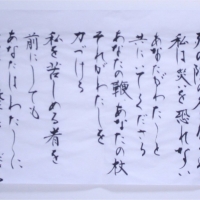 死の陰の
私は災いを恐れない
あなたがわたしと
共にいてくださる
あなたの鞭あなたの杖
それがわたしを
力づける
私を苦しめる者を
前にしても
あなたはわたしに